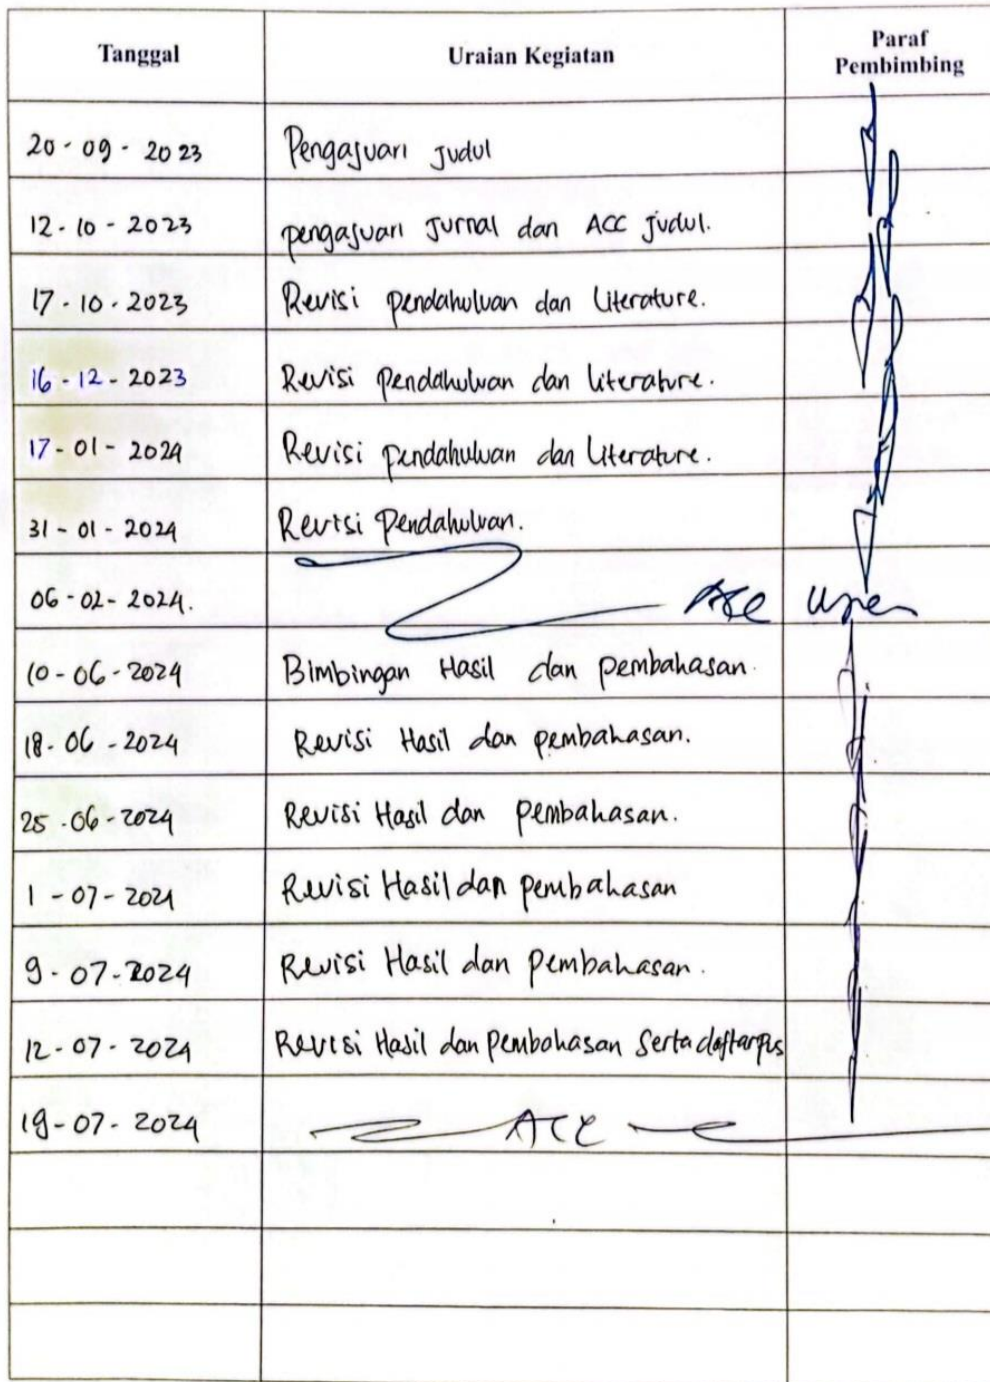 Tanggal Uraian Kegiatan Paraf Pembimbing
20-09-2023 Pengajuan Judul
12-10-2023 pengajuan Jurnal dan ACC Judul.
17-10-2023 Revisi pendahuluan dan Literature.
16-12-2023 Revisi pendahuluan dan literature.
17-01-2024 Revisi pendahuluan dan Literature.
31-01-2024 Revisi Pendahuluan.
06-02-2024. Acc
10-06-2024 Bimbingan Hasil dan pembahasan.
18-06-2024 Revisi Hasil dan pembahasan.
25-06-2024 Revisi Hasil dan pembahasan.
1-07-2024 Revisi Hasil dan pembahasan
9-07-2024 Revisi Hasil dan pembahasan.
12-07-2024 Revisi Hasil dan Pembahasan Serta daftarpus
19-07-2024 ACC